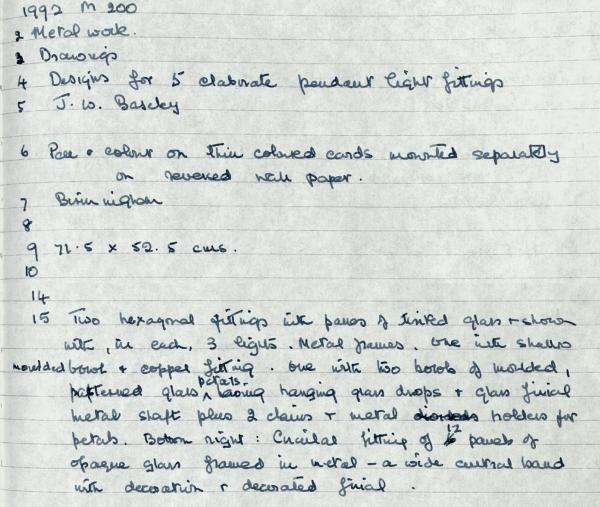 1992 M 200
2 Metal work.
3 Drawings
4 Designs for 5 elaborate pendant light fittings
5 J. W.
6 & colour on thin colored cards mounted separately
on reversed wall paper.
7 Birmingham
8
9 71.5 x 52.5 cms.
10
14
15 Two hexagonal fittings with panes of tinted glass + shown
with, in each, 3 lights. Metal frames. One with shallow
moulded bowl & copper fitting. One with two bowls of moulded,
patterned glass petals having hanging glass drops + glass finial
metal shaft plus 2 chains + metal holders for
petals. Bottom right: Circular fitting of 12 panels of
opaque glass framed in metal – a wide central band
with decoration + decorated finial.